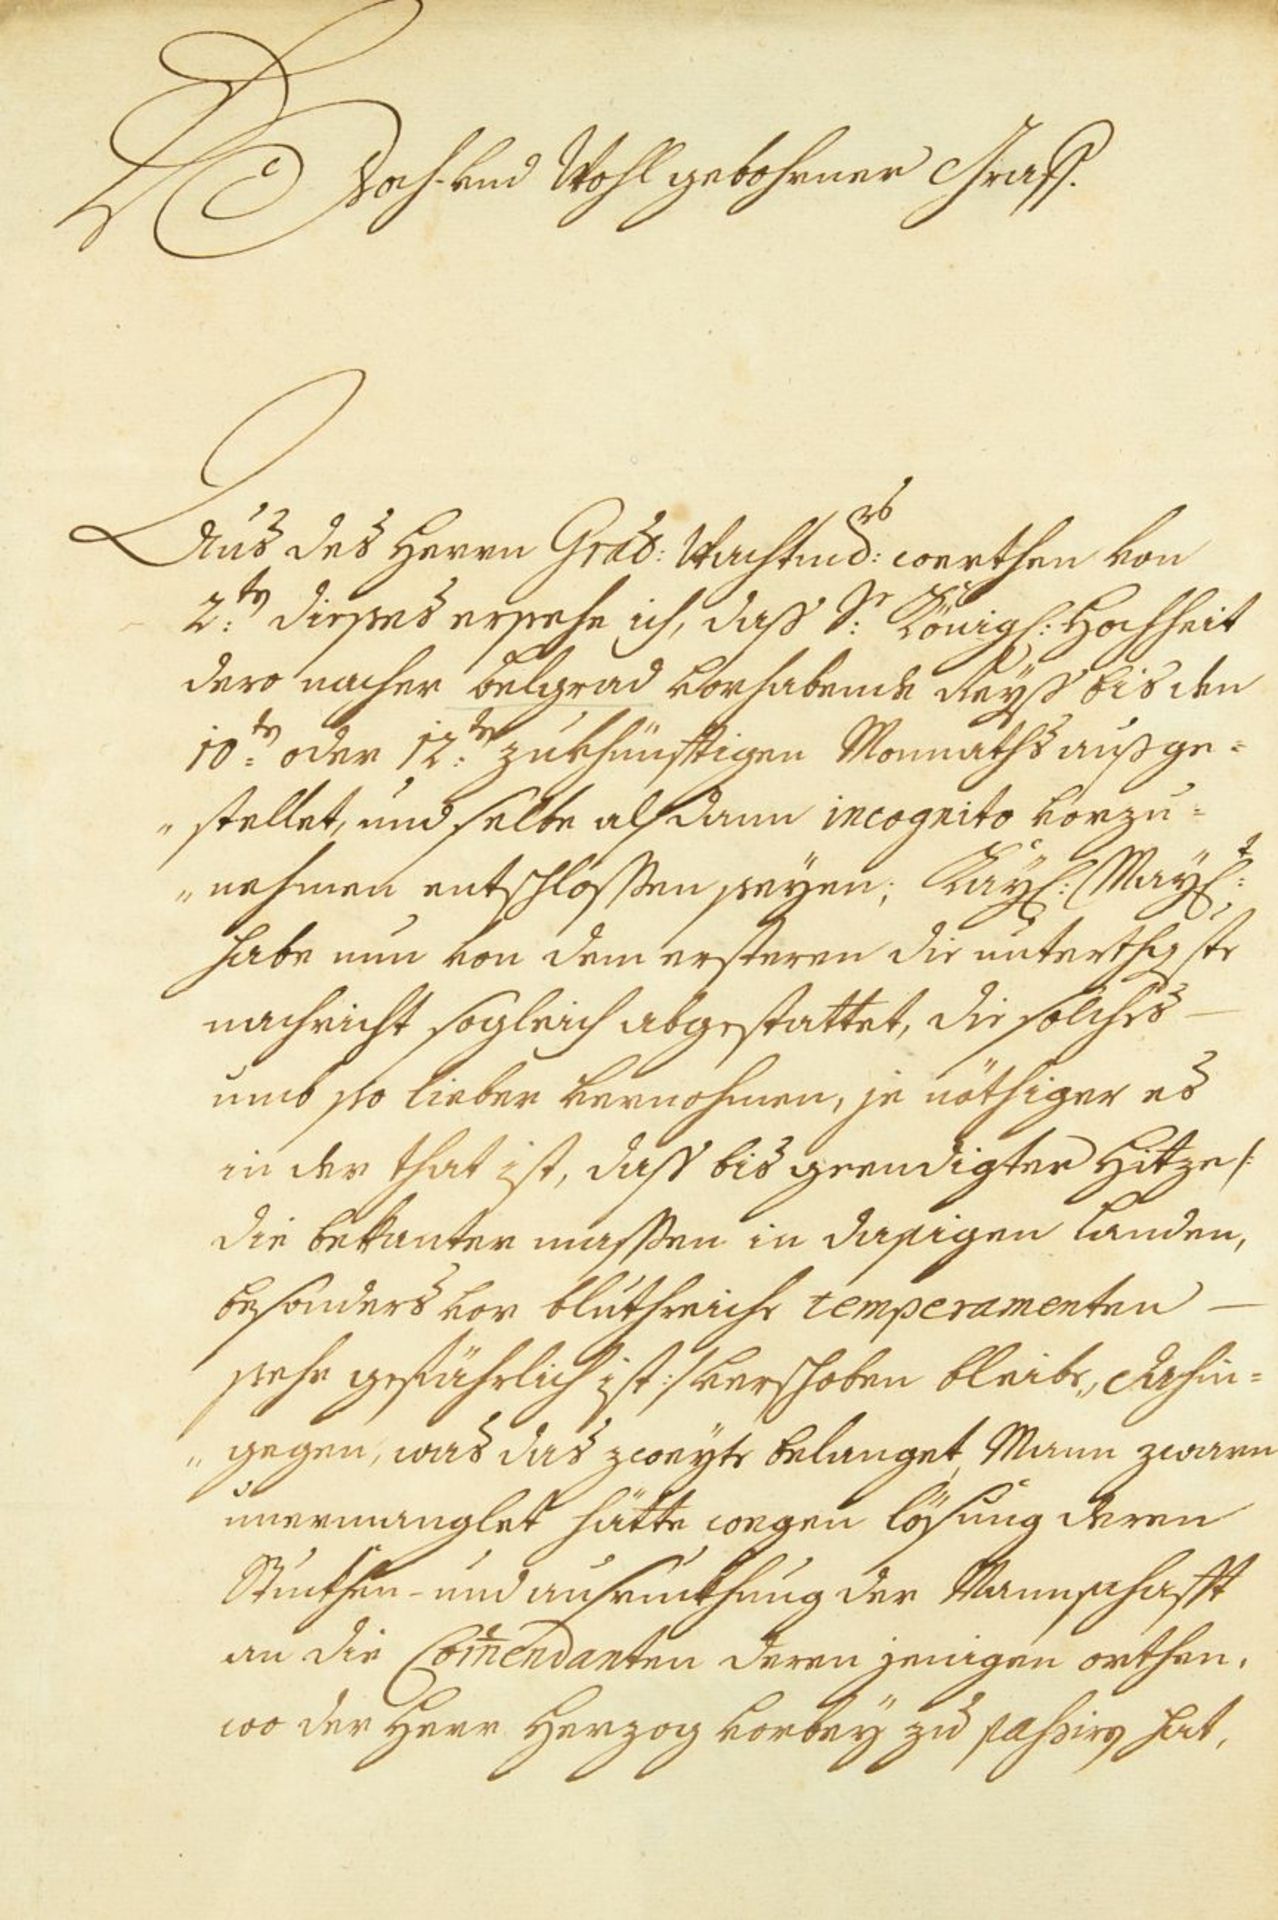 Hoch- und Wohl gebohrner Graff.
Aus des Herrn Gräl: Wachtmrs: werthen von
2:ten dieses ersehe ich, dass Sr: Königl: Hochheit
dero nacher belgrad vorhabende Reyß bis den
10:ten oder 12:ten zukhünfftigen Monnaths außge=
"stellet, und selbe alß dann incognito vorzu=
"nehmen entschlossen seyen; Kayl: Mayt:
habe nun von dem ersteren die unterthgste
nachricht sogleich abgestattet, die solches —
umb so lieber vernohmen, je nöthiger es
in der that ist, dass bis geendigter Hitze /:
die bekanter massen in dasigen Landen,
besonders vor bluthreiche temperamenten —
sehr gefährlich ist :/ verschoben bleibe, Dahin=
"gegen, was das zweyte belanget, Mann zwarn
unermanglet hätte wegen lösung deren
Stuckhen- und ausruckhung der Mannschafft
an die Comendanten deren jenigen orthen,
wo der Herr Herzog vorbey zu passiren hat,